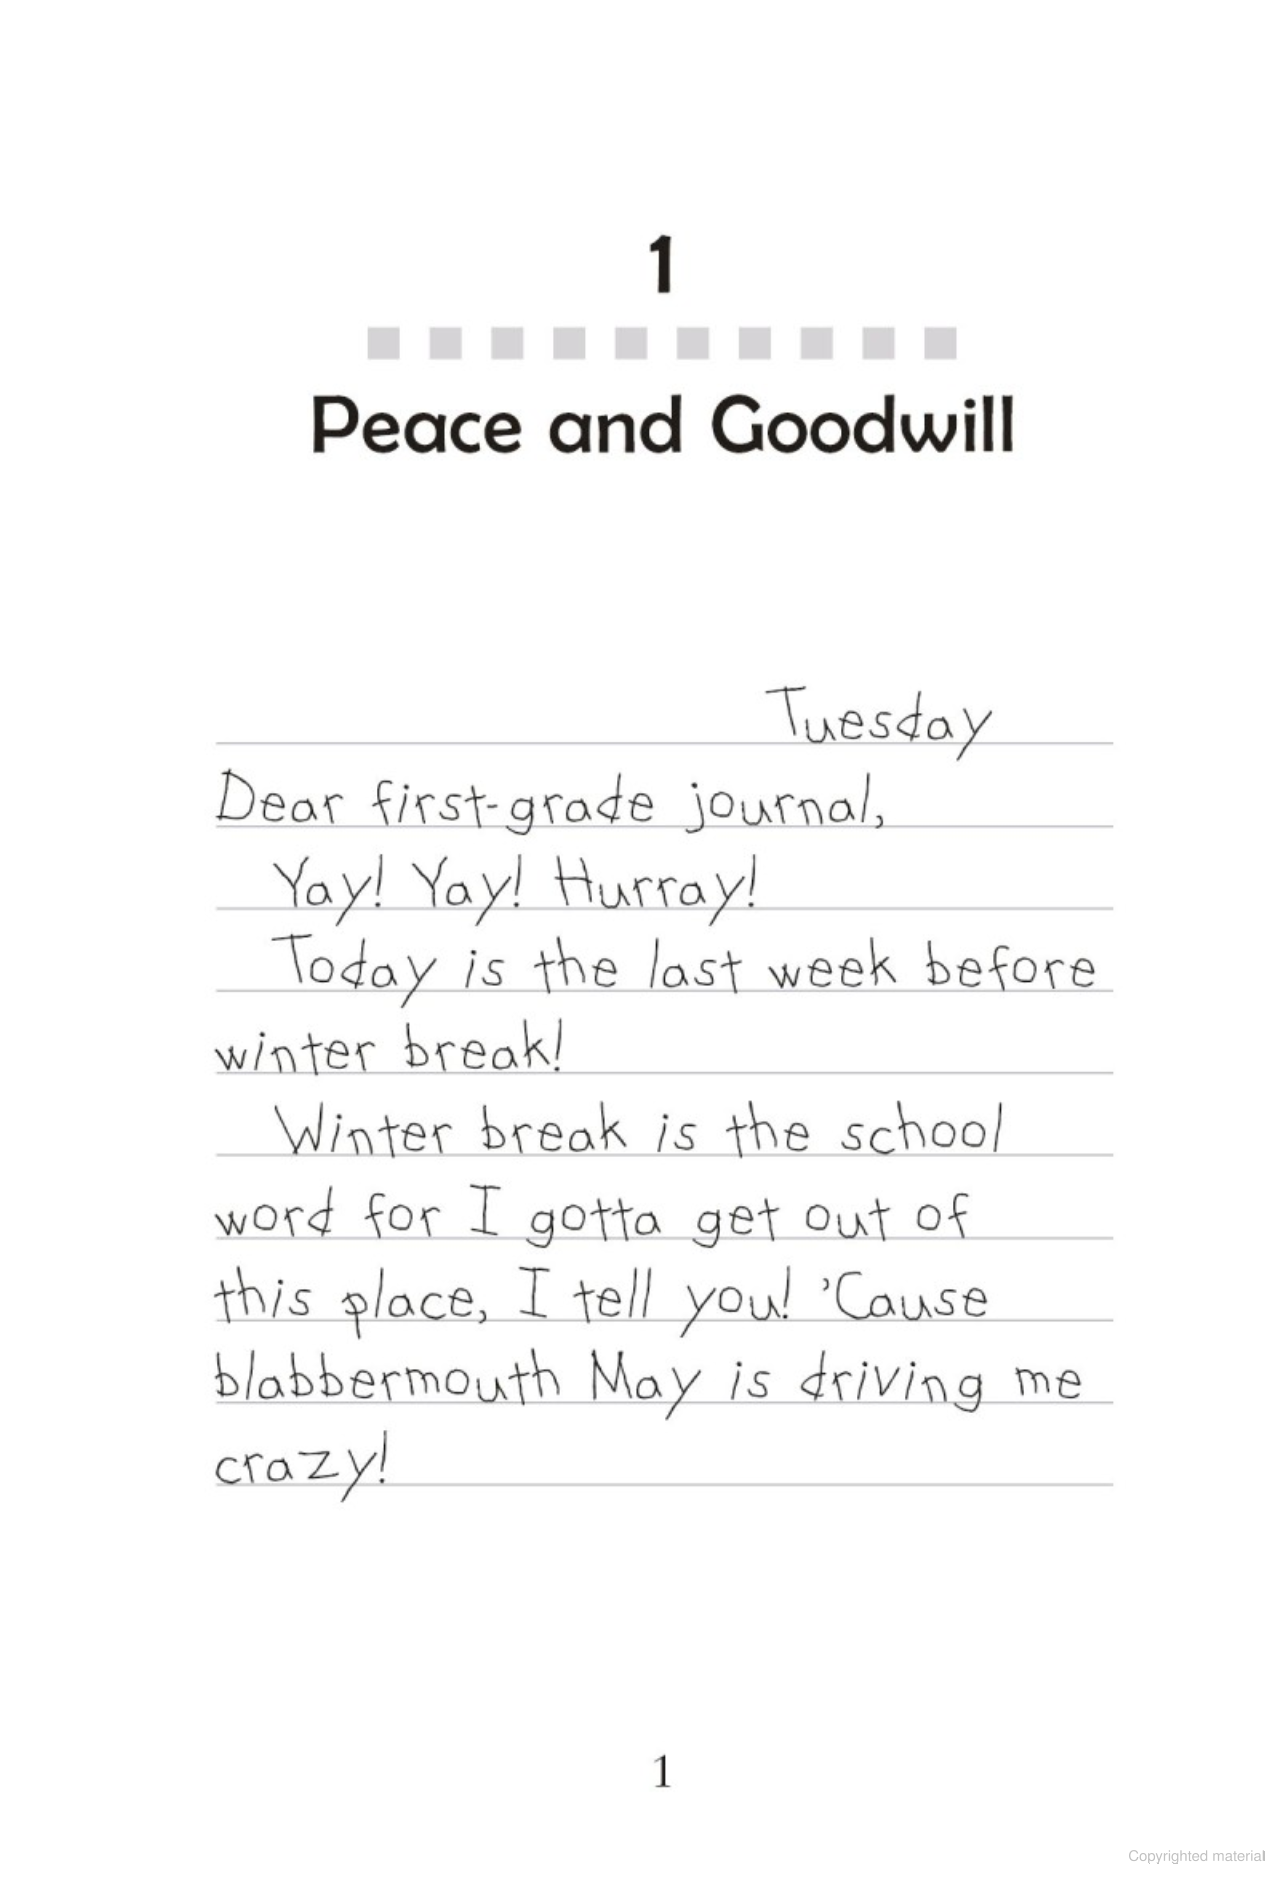 1
Peace and Goodwill
Tuesday
Dear first-grade journal,
Yay! Yay! Hurray!
Today is the last week before
winter break!
Winter break is the school
word for I gotta get out of
this place, I tell you! 'Cause
blabbermouth May is driving me
crazy!
1
Copyrighted material